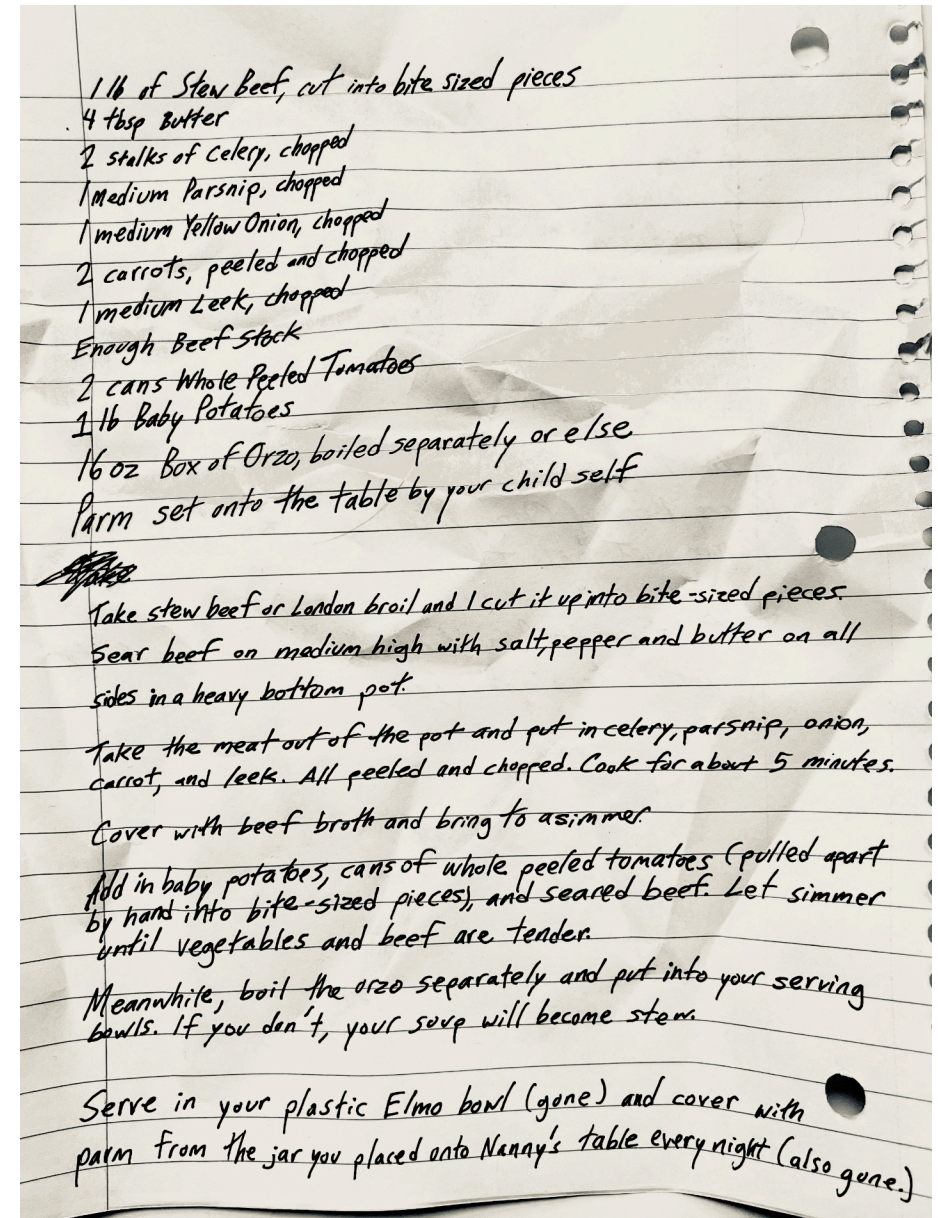 1 lb of Stew Beef, cut into bite sized pieces
4 tbsp Butter
2 stalks of Celery, chopped
1 medium Parsnip, chopped
1 medium Yellow Onion, chopped
2 carrots, peeled and chopped
1 medium Leek, chopped
Enough Beef Stock
2 cans Whole Peeled Tomatoes
1 lb Baby Potatoes
16 oz Box of Orzo, boiled separately or else
Parm set onto the table by your child self
Take stew beef or London broil and I cut it up into bite-sized pieces.
Sear beef on medium high with salt, pepper and butter on all
sides in a heavy bottom pot.
Take the meat out of the pot and put in celery, parsnip, onion,
carrot, and leek. All peeled and chopped. Cook for about 5 minutes.
Cover with beef broth and bring to a simmer.
Add in baby potatoes, cans of whole peeled tomatoes (pulled apart
by hand into bite-sized pieces), and seared beef. Let simmer
until vegetables and beef are tender.
Meanwhile, boil the orzo separately and put into your serving
bowls. If you don't, your soup will become stew.
Serve in your plastic Elmo bowl (gone) and cover with
parm from the jar you placed onto Nanny's table every night (also gone.)